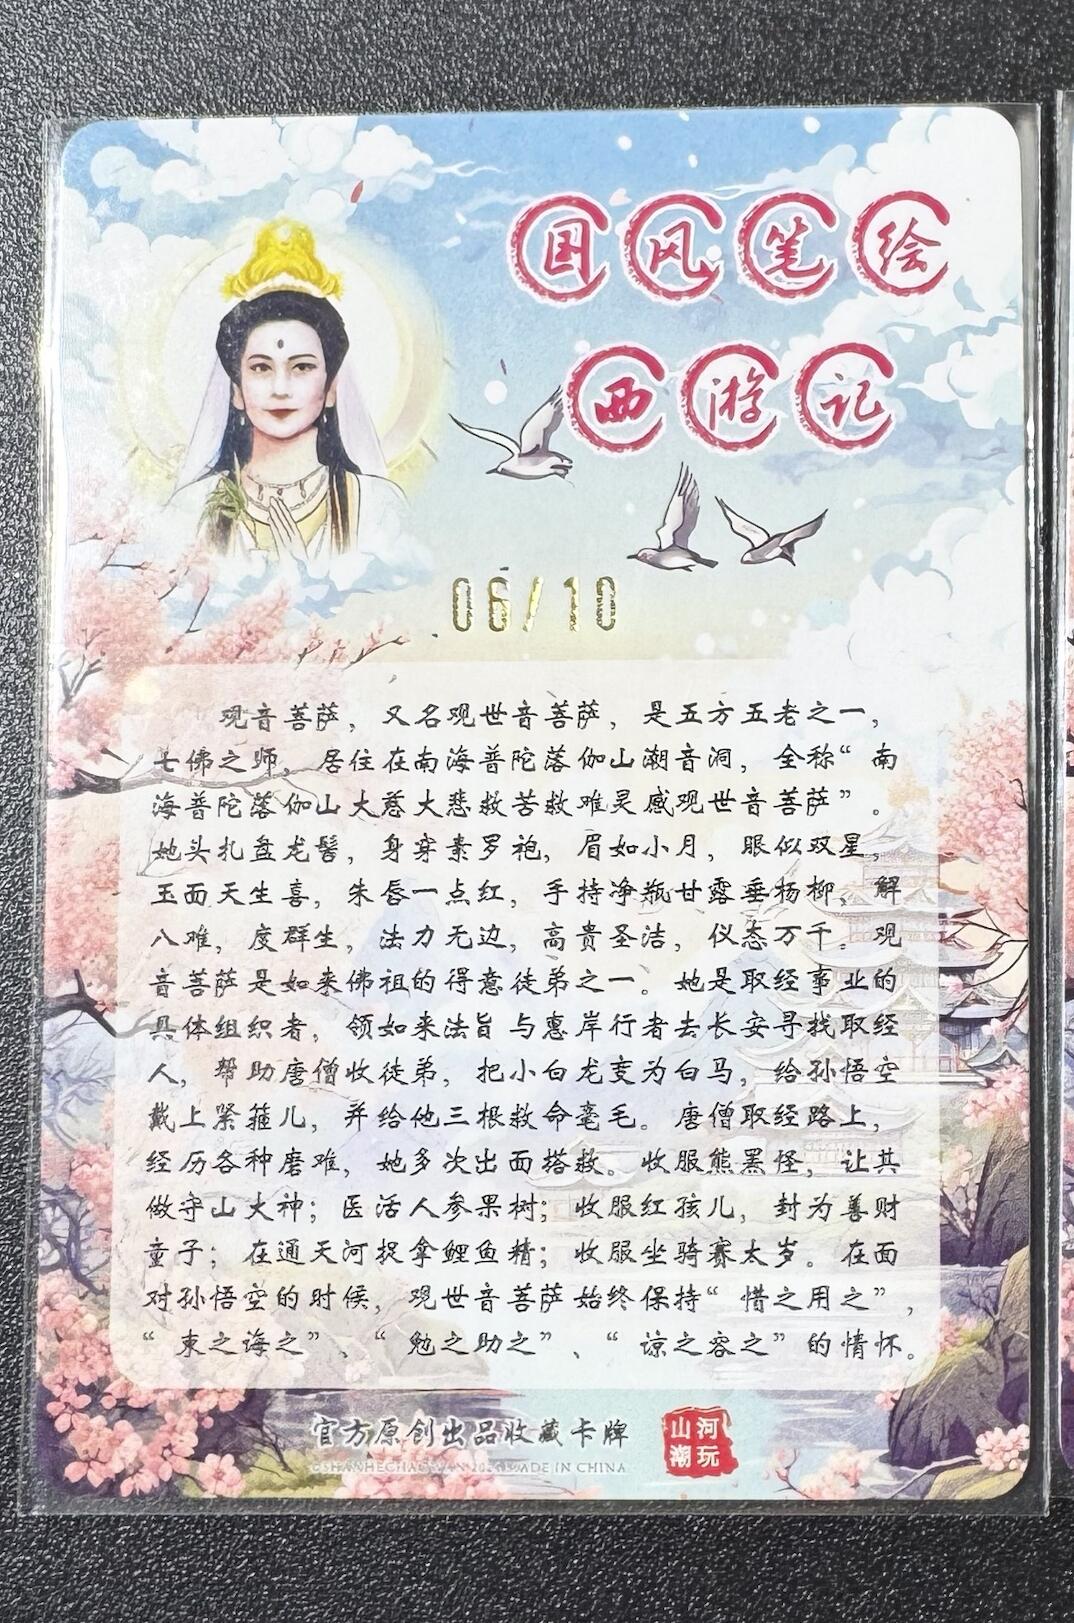 国风笔绘
西游记
06/10
观音菩萨，又名观世音菩萨，是五方五老之一，
七佛之师，居住在南海普陀落伽山潮音洞，全称“南
海普陀落伽山大慈大悲救苦救难灵感观世音菩萨”。
她头扎盘龙髻，身穿素罗袍，眉如小月，眼似双星，
玉面天生喜，朱唇一点红，手持净瓶甘露垂杨柳，解
八难，度群生，法力无边，高贵圣洁，仪态万千。观
音菩萨是如来佛祖的得意徒弟之一。她是取经事业的
具体组织者，领如来法旨与惠岸行者去长安寻找取经
人，帮助唐僧收徒弟，把小白龙变为白马，给孙悟空
戴上紧箍儿，并给他三根救命毫毛。唐僧取经路上，
经历各种磨难，她多次出面搭救。收服熊黑怪，让其
做守山大神；医活人参果树；收服红孩儿，封为善财
童子；在通天河捉拿鲤鱼精；收服坐骑赛太岁。在面
对孙悟空的时候，观世音菩萨始终保持“惜之用之”，
“束之诲之”、“勉之助之”、“谅之容之”的情怀。
官方原创出品收藏卡牌
MADE IN CHINA
山河
潮玩